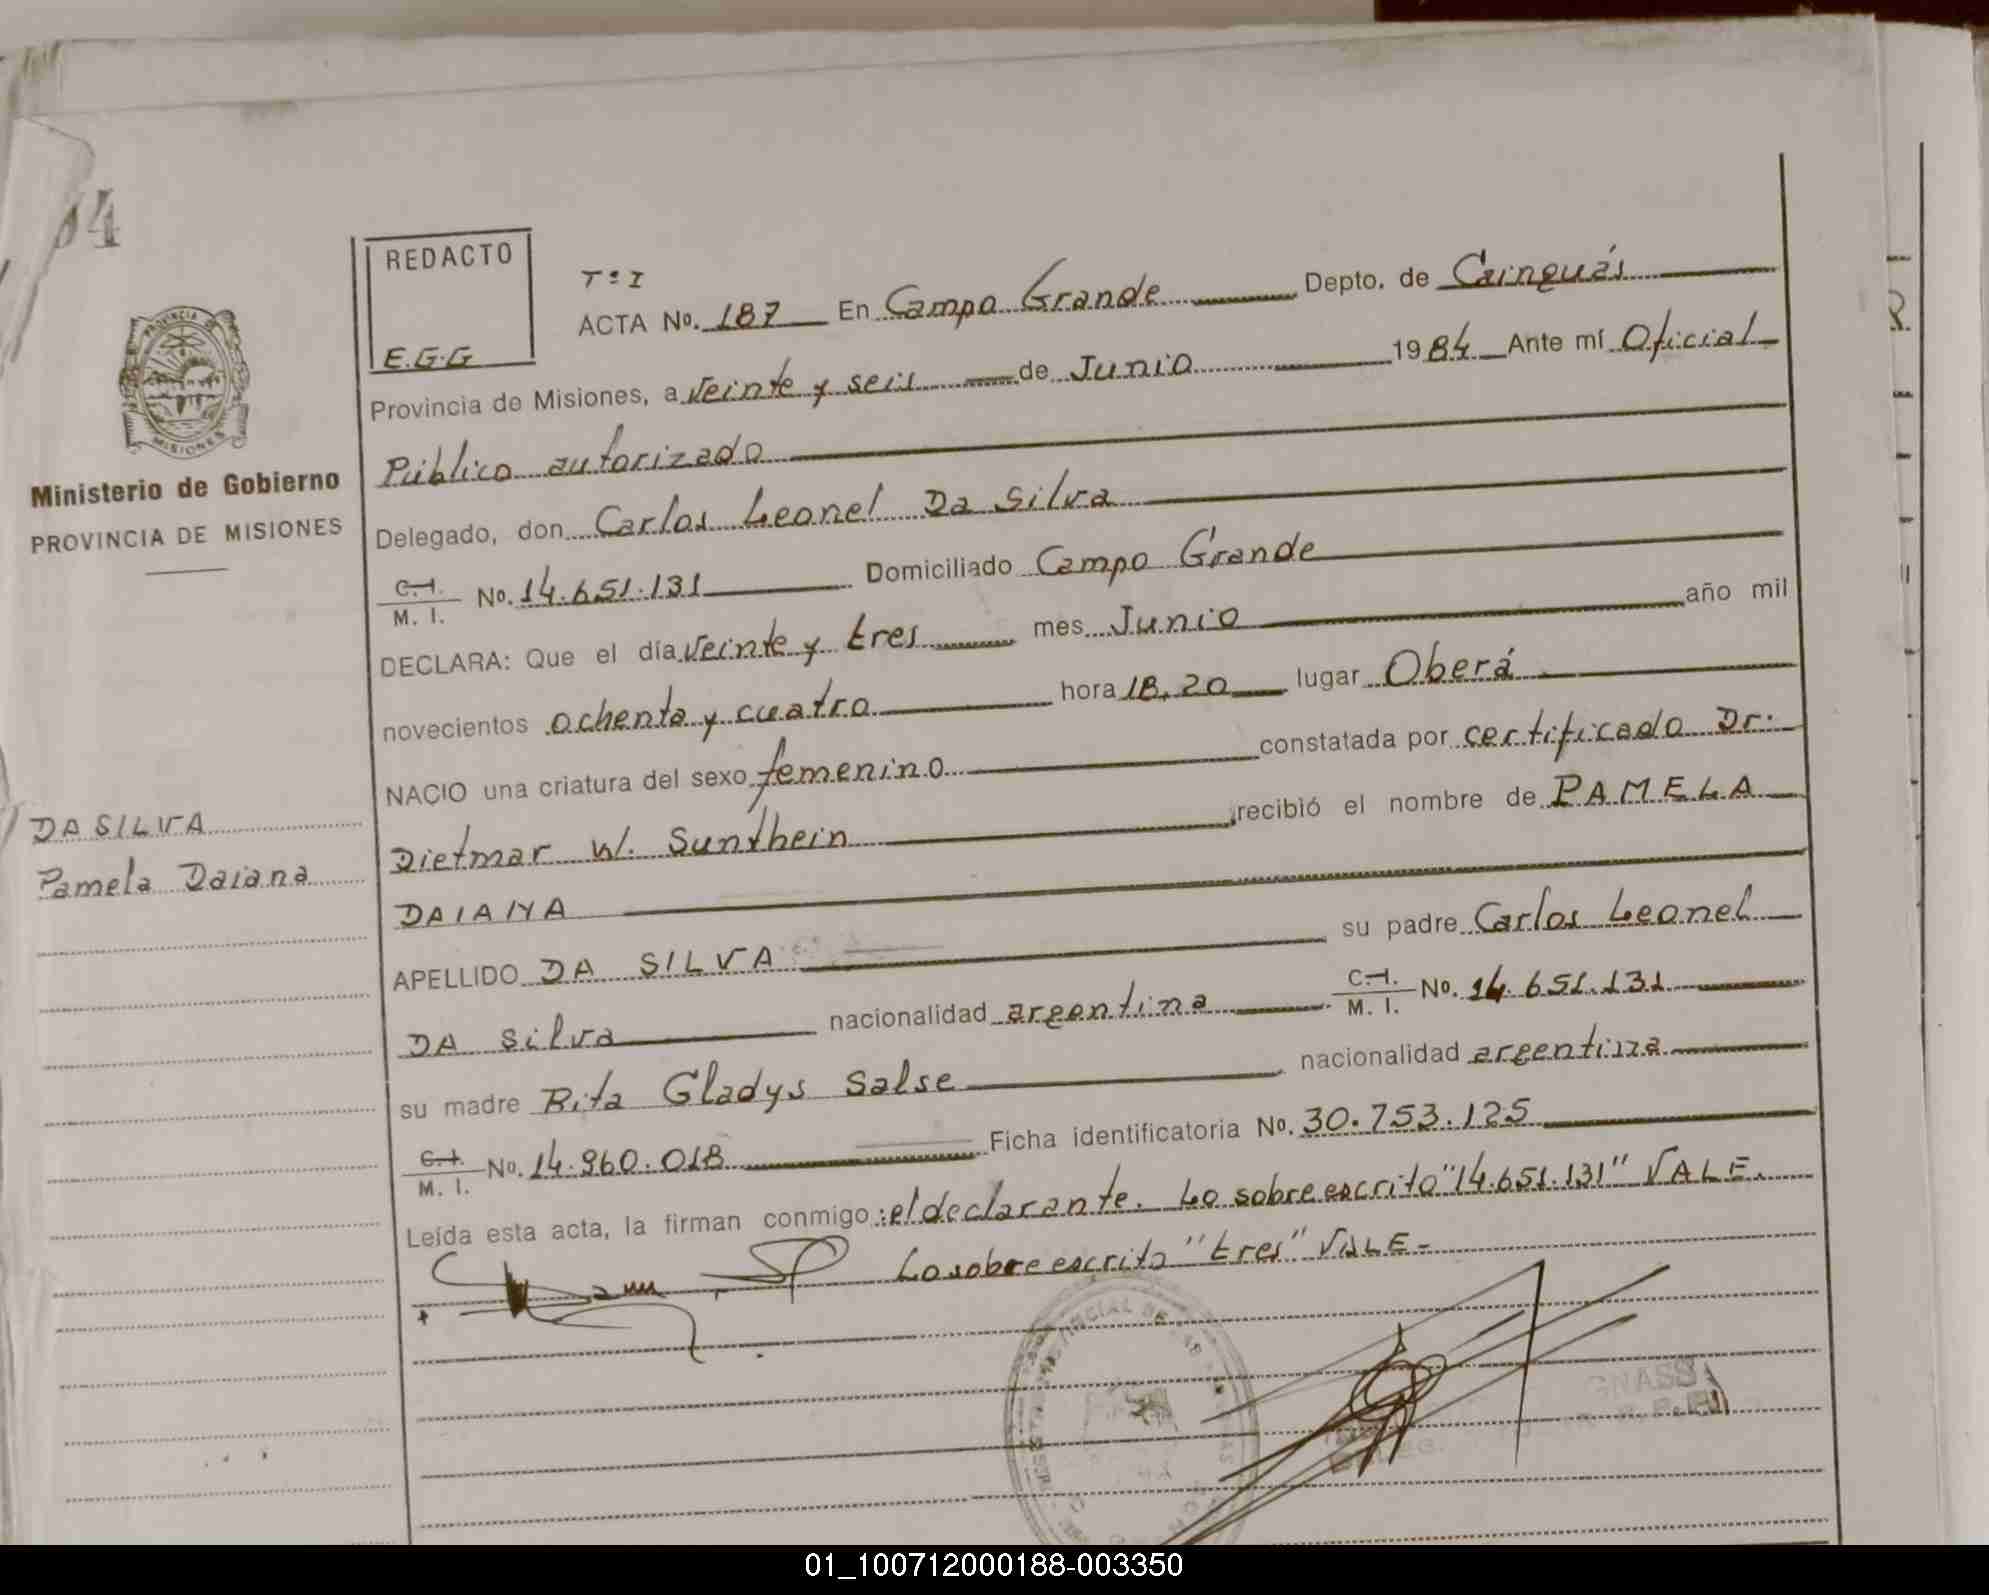 04
REDACTO
E.G.G
Tº I
ACTA No. 187 En Campo Grande Depto. de Cainguás
Provincia de Misiones, a veinte y seis de Junio 1984 Ante mí Oficial
Público autorizado
Delegado, don Carlos Leonel Da Silva
C.I. M. I. No. 14.651.131 Domiciliado Campo Grande
DECLARA: Que el día veinte y tres mes Junio año mil
novecientos ochenta y cuatro hora 18,20 lugar Oberá
NACIO una criatura del sexo femenino constatada por certificado Dr.
Dietmar W. Sunthein recibió el nombre de PAMELA
DAIANA
APELLIDO DA SILVA su padre Carlos Leonel
DA Silva nacionalidad argentina C.I. M. I. No. 14.651.131
su madre Rita Gladys Salse nacionalidad argentina
C.I. M. I. No. 14.960.018 Ficha identificatoria No. 30.753.125
Leída esta acta, la firman conmigo: el declarante. Lo sobre escrito "14.651.131" VALE.
Lo sobre escrito "tres" VALE-
PROVINCIA DE
MISIONES
Ministerio de Gobierno
PROVINCIA DE MISIONES
DA SILVA
Pamela Daiana
01_100712000188-003350